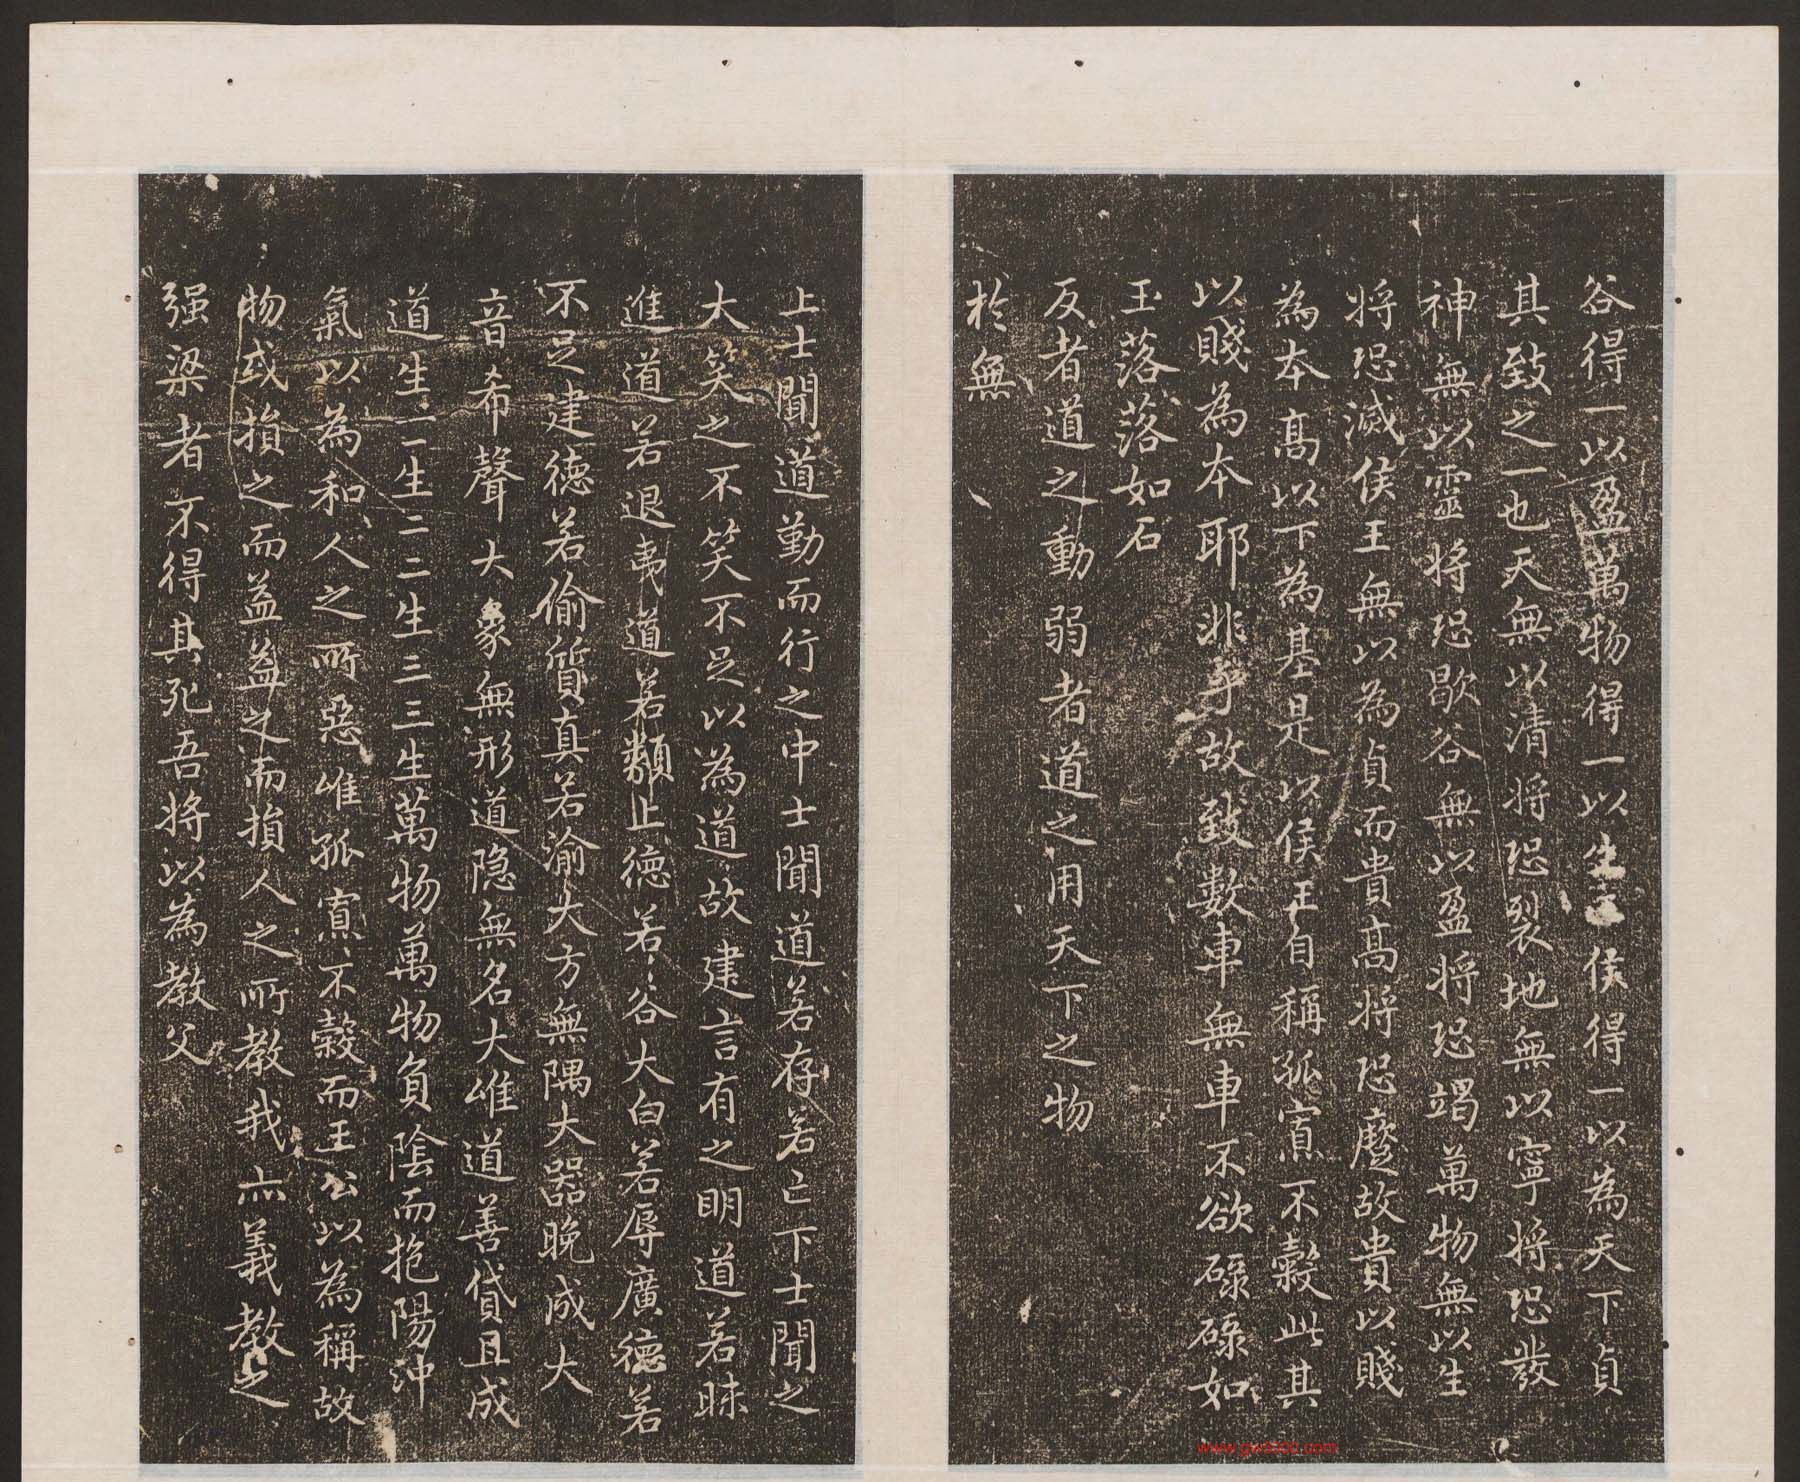 谷得一以盈萬物得一以生王侯得一以為天下貞
其致之一也天無以清將恐裂地無以寧將恐發
神無以靈將恐歇谷無以盈將恐竭萬物無以生
將恐滅侯王無以為貞而貴高將恐蹷故貴以賤
為本高以下為基是以侯王自稱孤寡不穀此其
以賤為本耶非乎故致數車無車不欲碌碌如
玉落落如石
反者道之動弱者道之用天下之物
於無
上士聞道勤而行之中士聞道若存若亡下士聞之
大笑之不笑不足以為道故建言有之明道若昧
進道若退夷道若類上德若谷大白若辱廣德若
不足建德若偷質真若渝大方無隅大器晚成大
音希聲大象無形道隱無名夫唯道善貸且成
道生一一生二二生三三生萬物萬物負陰而抱陽沖
氣以為和人之所惡唯孤寡不穀而王公以為稱故
物或損之而益益之而損人之所教我亦義教之
强梁者不得其死吾將以為教父
www.gw8300.com